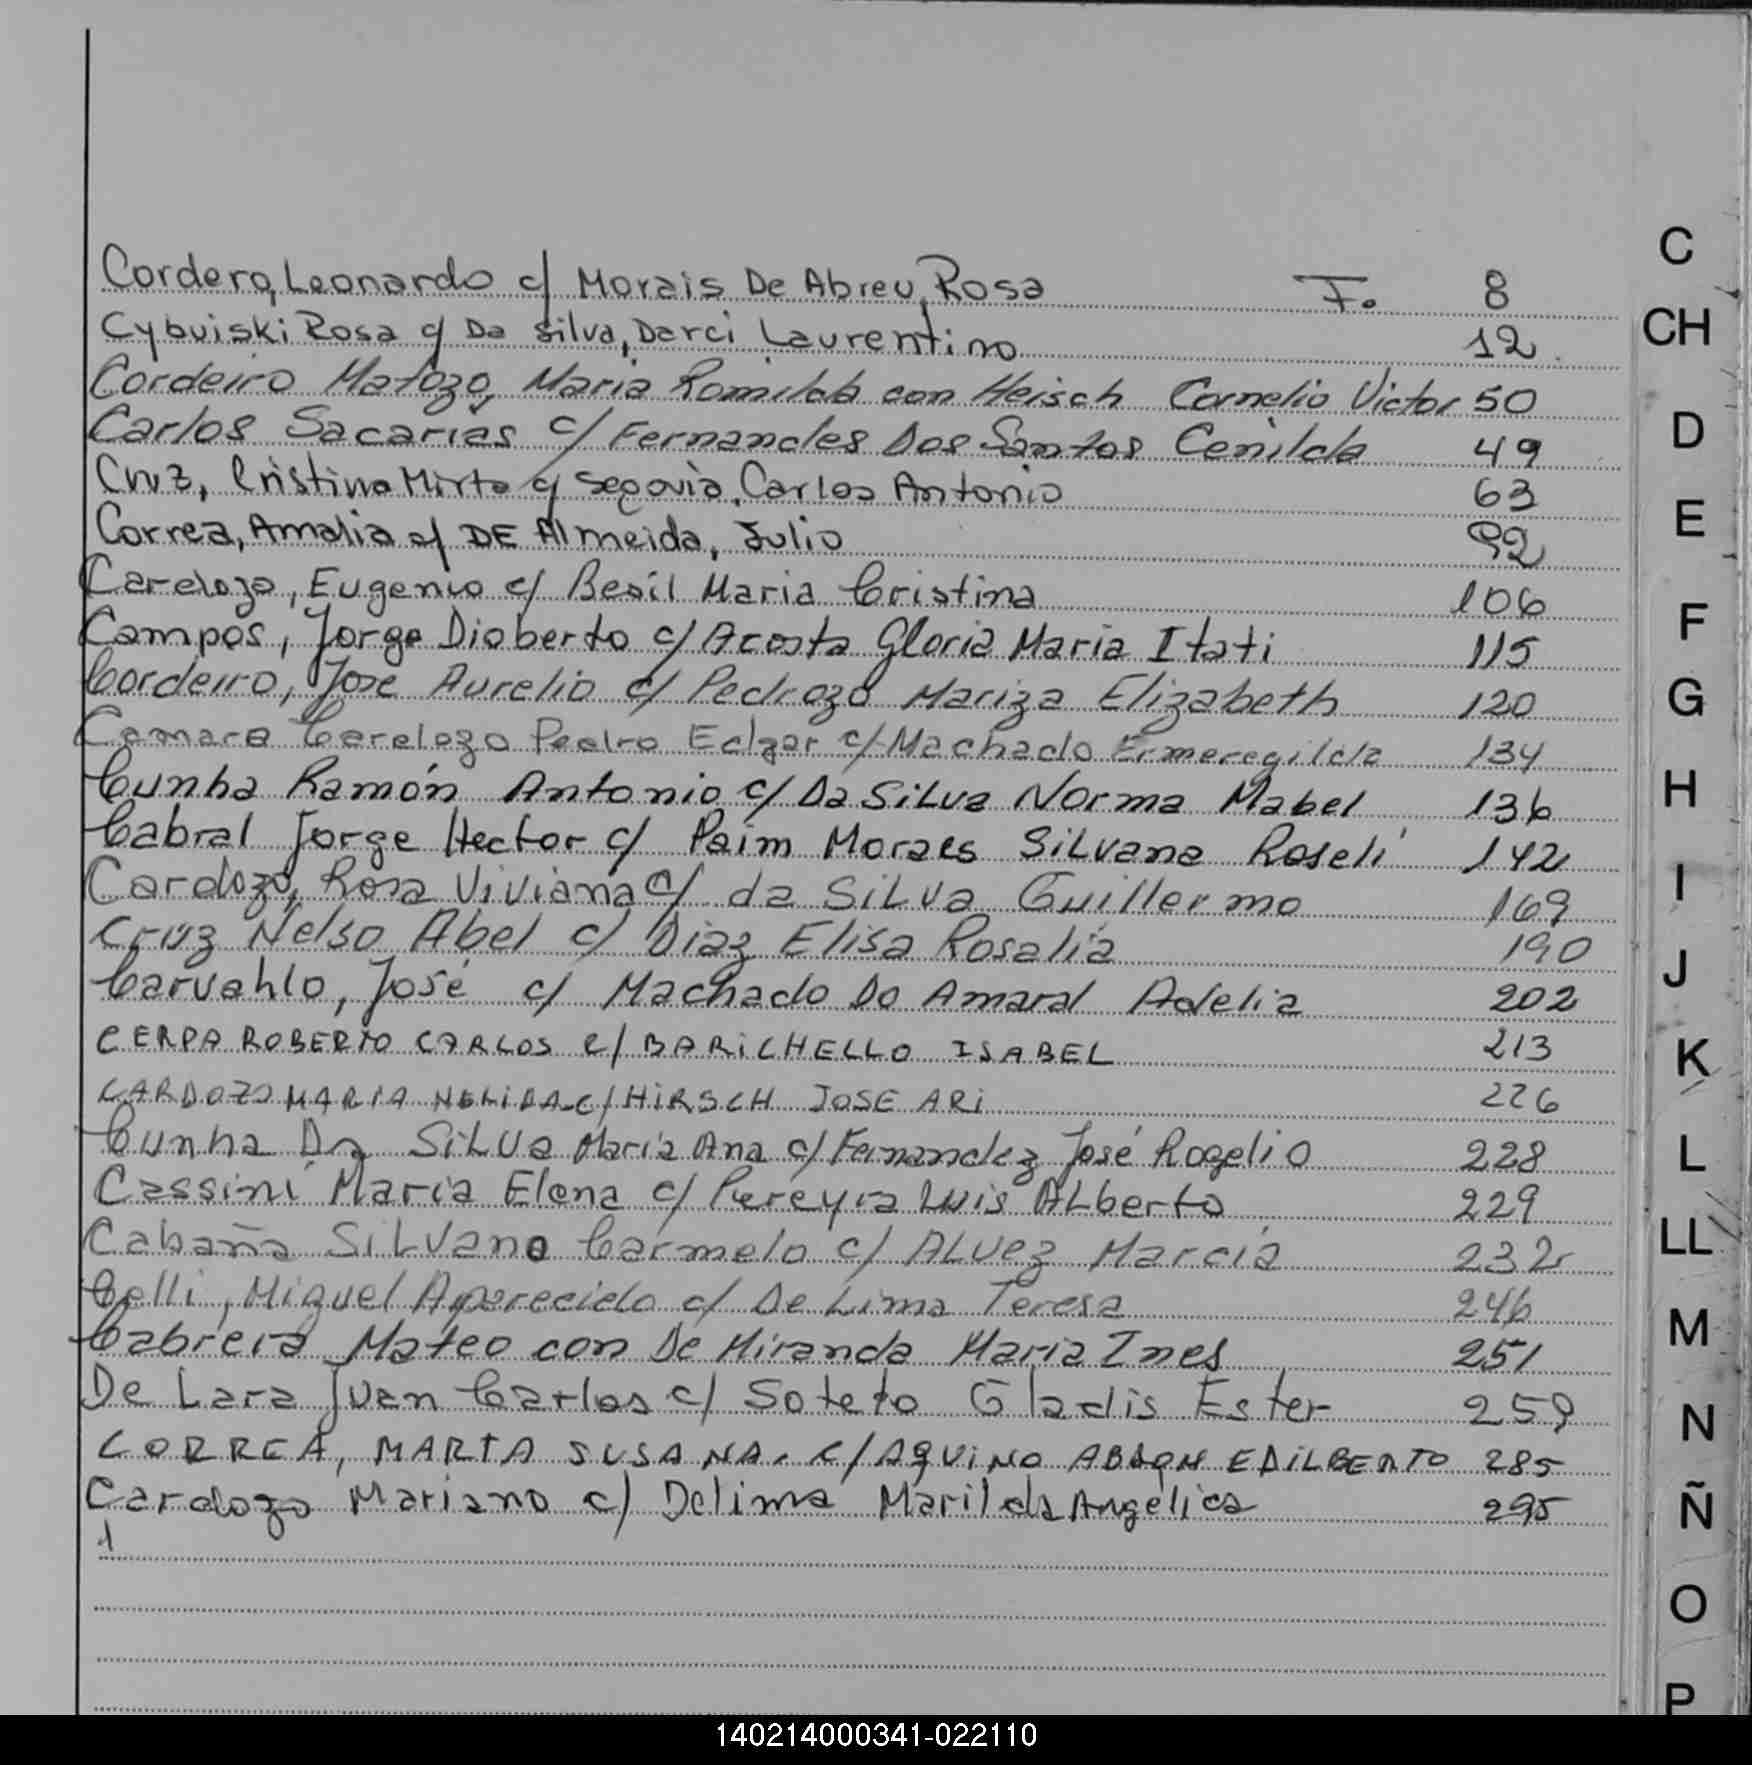 Cordero, Leonardo c/ Morais De Abreu, Rosa F. 8
Cybuiski Rosa c/ Da Silva, Darci Laurentino 12
Cordeiro Matozo, Maria Romilda con Heisch Cornelio Victor 50
Carlos Sacarias c/ Fernandes Dos Santos Cenilda 49
Cruz, Cristina Mirta c/ Segovia, Carlos Antonio 63
Correa, Amalia c/ DE Almeida, Julio 92
Cardozo, Eugenio c/ Besil Maria Cristina 106
Campos, Jorge Dioberto c/ Acosta Gloria Maria Itati 115
Cordeiro, Jose Aurelio c/ Pedrozo Mariza Elizabeth 120
Camara Cardozo Pedro Edgar c/ Machado Ermeregilda 134
Cunha Ramón Antonio c/ Da Silva Norma Mabel 136
Cabral Jorge Hector c/ Paim Moraes Silvana Roseli 142
Cardozo, Rosa Viviana c/ da Silva Guillermo 169
Cruz Nelso Abel c/ Diaz Elisa Rosalia 190
Carvahlo, José c/ Machado Do Amaral Adelia 202
CERPA ROBERTO CARLOS c/ BARICHELLO ISABEL 213
CARDOZO MARIA NELIDA c/ HIRSCH JOSE ARI 226
Cunha Da Silva Maria Ana c/ Fernandez José Rogelio 228
Cassini Maria Elena c/ Pereyra Luis Alberto 229
Cabaña Silvano Carmelo c/ Alvez Marcia 232
Celli, Miguel Aparecido c/ De Lima Teresa 246
Cabrera Mateo con De Miranda Maria Ines 251
De Lara Juan Carlos c/ Soteto Gladis Ester 259
CORREA, MARTA SUSANA. c/ AQUINO ABDON EDILBERTO 285
Cardozo Mariano c/ Delima Marilda Angélica 295
C
CH
D
E
F
G
H
I
J
K
L
LL
M
N
Ñ
O
P
140214000341-022110